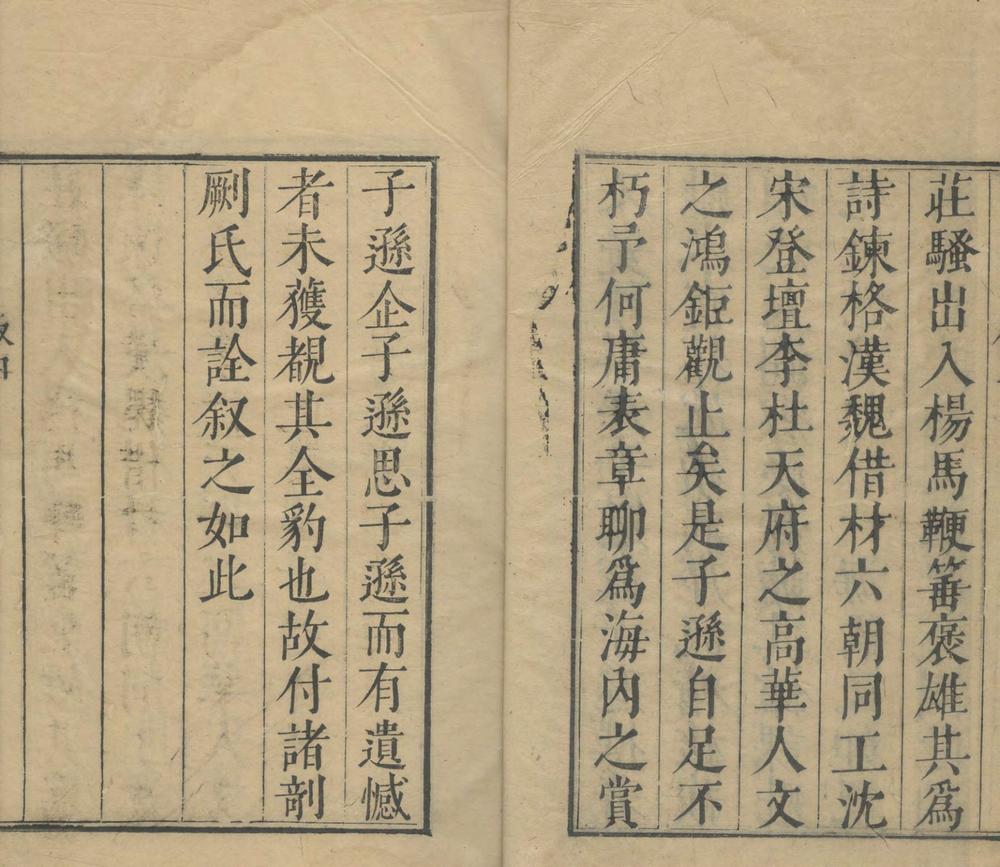 莊騷出入楊馬鞭箠褒雄其為
詩鍊格漢魏借材六朝同工沈
宋登壇李杜天府之高華人文
之鴻鉅觀止矣是子遜自足不
朽予何庸表章聊為海內之賞
子遜企子遜思子遜而有遺憾
者未獲覩其全豹也故付諸剖
劂氏而詮叙之如此